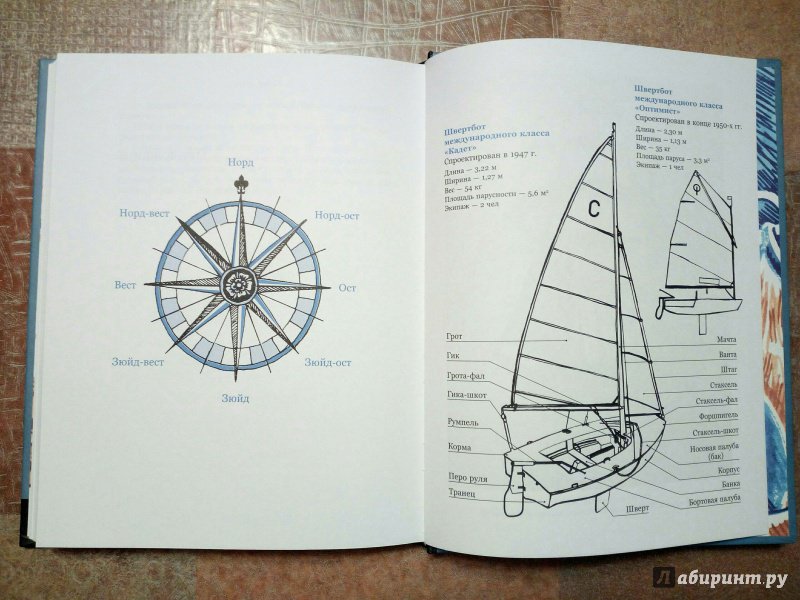 Норд
Норд-вест
Норд-ост
Вест
Ост
Зюйд-вест
Зюйд-ост
Зюйд
Швертбот
международного класса
«Кадет»
Спроектирован в 1947 г.
Длина — 3,22 м
Ширина — 1,27 м
Вес — 54 кг
Площадь парусности — 5,6 м²
Экипаж — 2 чел
Швертбот
международного класса
«Оптимист»
Спроектирован в конце 1950-х гг.
Длина — 2,30 м
Ширина — 1,13 м
Вес — 35 кг
Площадь паруса — 3,3 м²
Экипаж — 1 чел
C
Грот
Гик
Грота-фал
Гика-шкот
Румпель
Корма
Перо руля
Транец
Мачта
Ванта
Штаг
Стаксель
Стаксель-фал
Форштигель
Стаксель-шкот
Носовая палуба
(бак)
Корпус
Банка
Бортовая палуба
Шверт
Лабиринт.ру